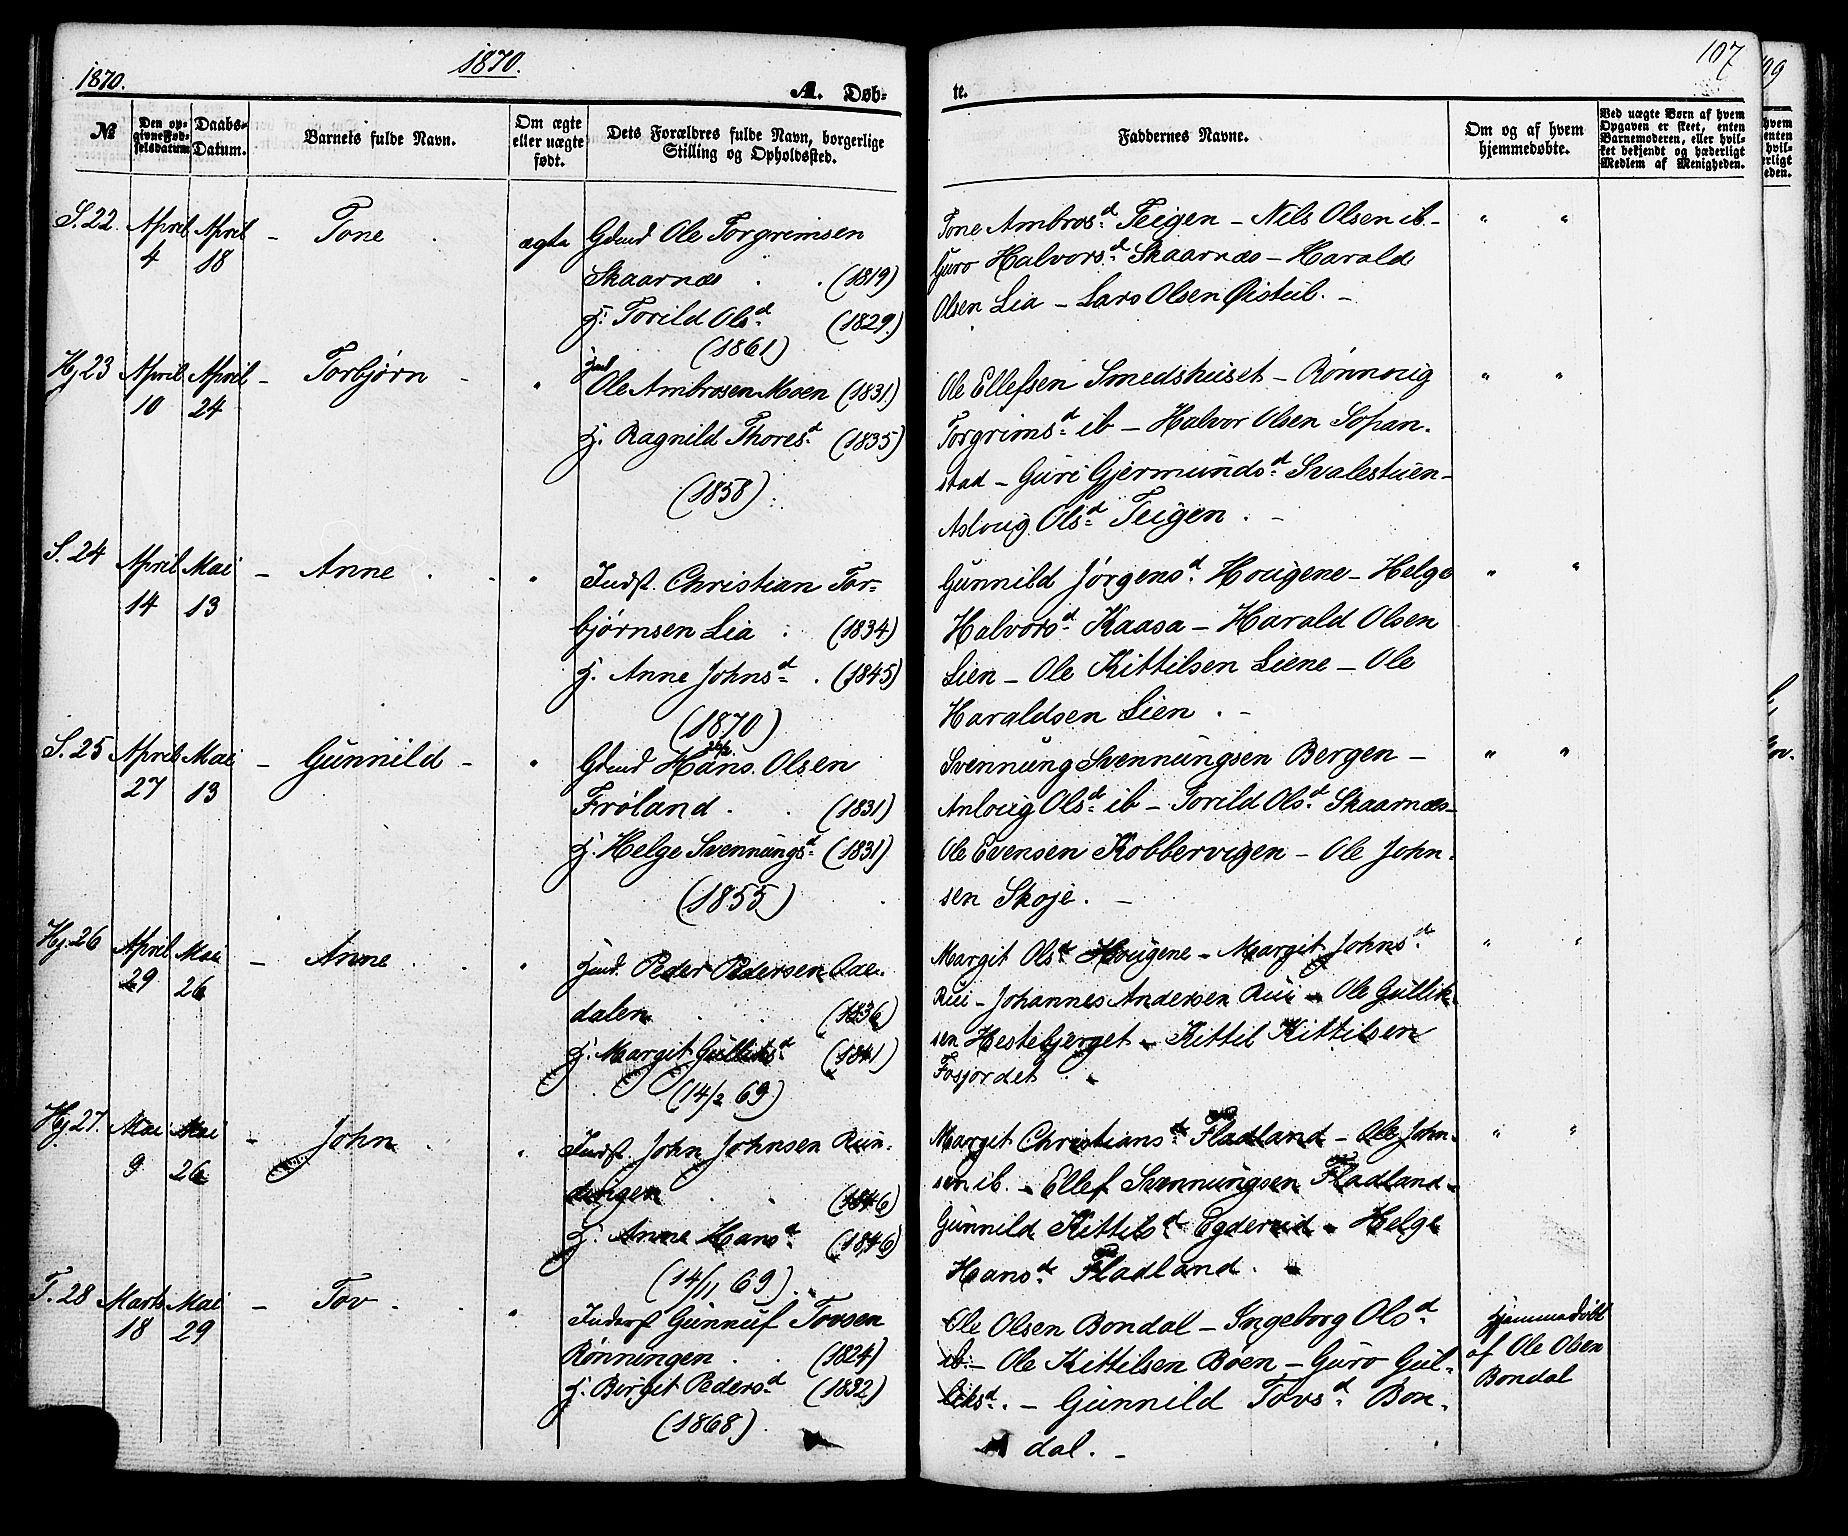 1870.
1870.
A. Døb-
№
Den op-
givne Fød-
selsdatum
Daabs-
Datum.
Barnets fulde Navn.
Om ægte
eller uægte
født.
Dets Forældres fulde Navn, borgerlige
Stilling og Opholdssted.
S. 22. April 4 April 18 - Tone ægte Gdmd Ole Torgrimsen
Skaarnæs (1819)
H. Torild Olsd (1829)
(1861)
Hj 23 April 10 April 24 - Torbjørn - " Hmd
Ole Ambrosen Moen (1831)
H. Ragnild Thoresd (1835)
(1858)
S. 24 April 14 Mai 13 - Anne " Indst. Christian Tor-
bjørnsen Lia (1834)
H. Anne Johnsd (1845)
(1870)
S. 25 April 27 Mai 13 - Gunnild - " Gdmd Hans Olsen
Frøland (1831)
H. Helge Svennungsd (1831)
(1855)
Hj. 26 April 29 Mai 26 - Anne " Hmd. Peder Pedersen
dalen (1836)
H. Margit Gulliksd (1841)
(14/2 69)
Hj 27 Mai 9 Mai 26 - John " Indst. John Johnsen Run-
dingen (1846)
H. Anne Hansd (1846)
(14/11 69)
T. 28 Marts 18 Mai 29 - Tov - " Inderst Gunnuf Tovsen
Rønningen (1824)
H. Birgit Pedersd (1832)
(1868)
107
te.
Faddernes Navne.
Om og af hvem
hjemmedøbte.
Ved uægte Børn af hvem
Opgaven er skeet, enten
Barnemoderen, eller hvil-
ket bekjendt og hæderligt
Medlem af Menigheden.
Tone Ambrosd Teigen - Nils Olsen ib -
Guro Halvorsd Skaarnæs - Harald
Olsen Lia - Lars Olsen Østeib. -
" "
Ole Ellefsen Smedshuset - Rønnoug
Torgrimsd ib - Halvor Olsen Sopan-
stad - Guri Gjermundsd Svalestuen -
Asloug Olsd Teigen. -
" "
Gunnild Jørgensd Hougene - Helge
Halvorsd Kaasa - Harald Olsen
Lien - Ole Kittilsen Liene - Ole
Haraldsen Lien. -
" "
Svennung Svennungsen Bergen -
Anloug Olsd ib - Torild Olsd Skaarnæs -
Ole Evensen Kobbervigen - Ole John-
sen Skoje. -
" "
Margit Olsd Hougene - Margit Johnsd
Rui - Johannes Andersen Rui - Ole Gullik-
sen Hestebjerget - Kittil Kittilsen
Fosjordet
" "
Margit Christiansd Fladland - Ole John-
sen ib. - Ellef Svennungsen Fladland -
Gunnild Kittilsd Egderud - Helge
Hansd Fladland.
" "
Ole Olsen Bondal - Ingeborg Olsd
ib - Ole Kittilsen Bøen - Guro Gul-
liksd. - Gunnild Tovsd Bon-
dal. -
Hjemmedøbt
af Ole Olsen
Bondal